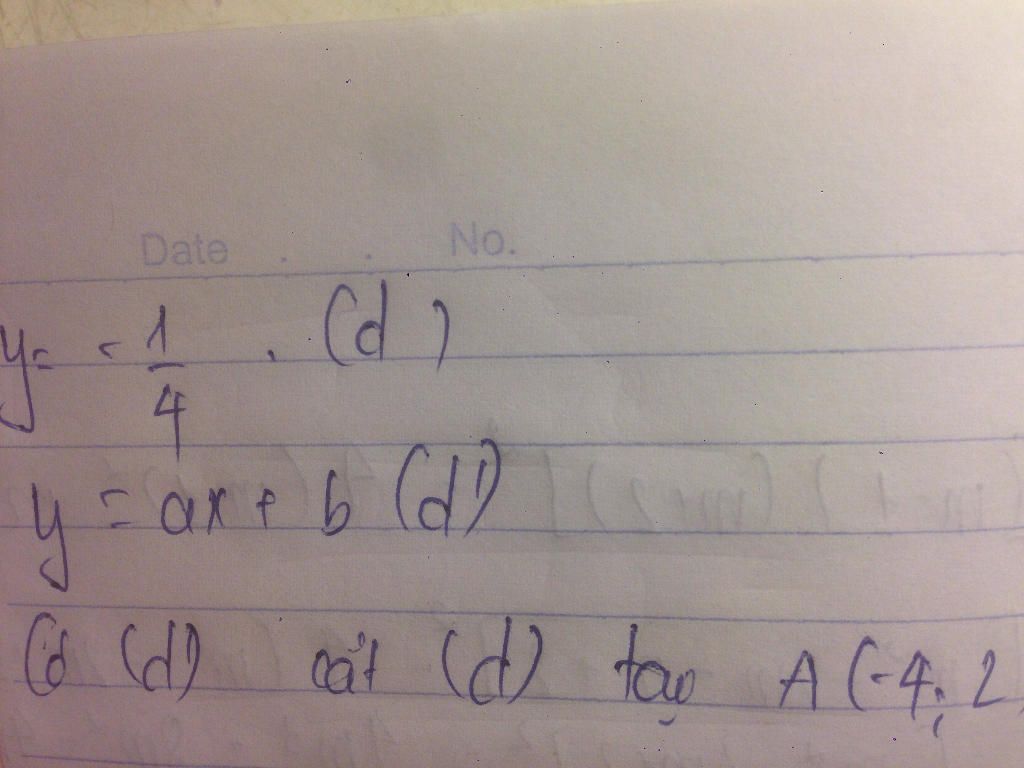 Date . . No.
y = - 1/4 . (d)
y = ax + b (d')
(d') cắt (d) tạo A (-4; 2